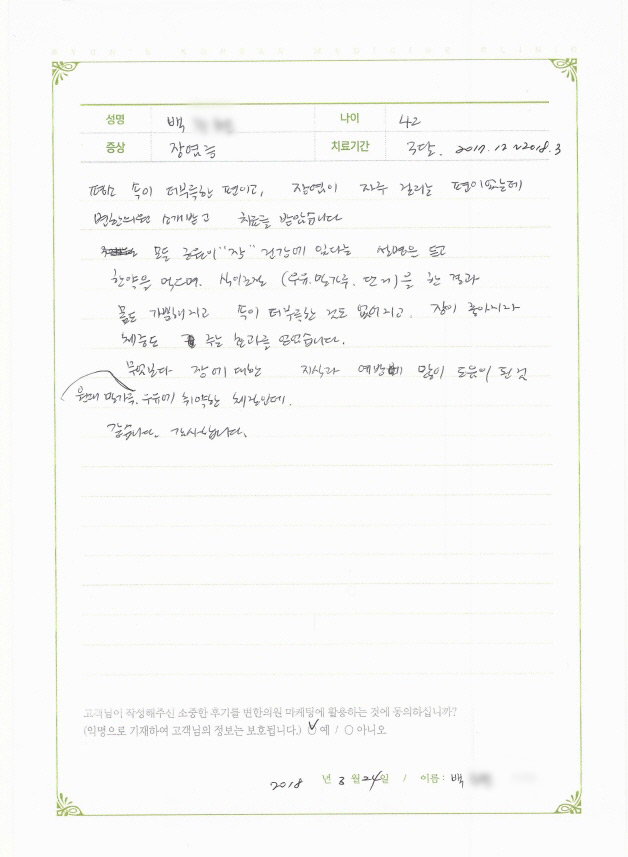 BYUN'S KOREAN MEDICINE CLINIC
성명 백 나이 42
증상 장염 등 치료기간 3달. 2017.12~2018.3
평소 속이 더부룩한 편이고, 장염이 자주 걸리는 편이었는데
변한의원 소개받고 치료를 받았습니다
모든 근원이 "장" 건강에 있다는 설명을 듣고
한약을 먹으며. 식이조절 (우유.밀가루. 단 게)을 한 결과
몸도 가뿐해지고 속이 더부룩한 것도 없어지고. 장이 좋아지라
체중도 주는 효과를 얻었습니다.
무엇보다 장에 대한 지식과 예방에 많이 도움이 된 것
원래 밀가루. 우유에 취약한 체질인데.
같습니다. 감사합니다.
고객님이 작성해주신 소중한 후기를 변한의원 마케팅에 활용하는 것에 동의하십니까?
(익명으로 기재하여 고객님의 정보는 보호됩니다.) ○ 예 / ○ 아니오
2018 년 3 월 24 일 / 이름 : 백